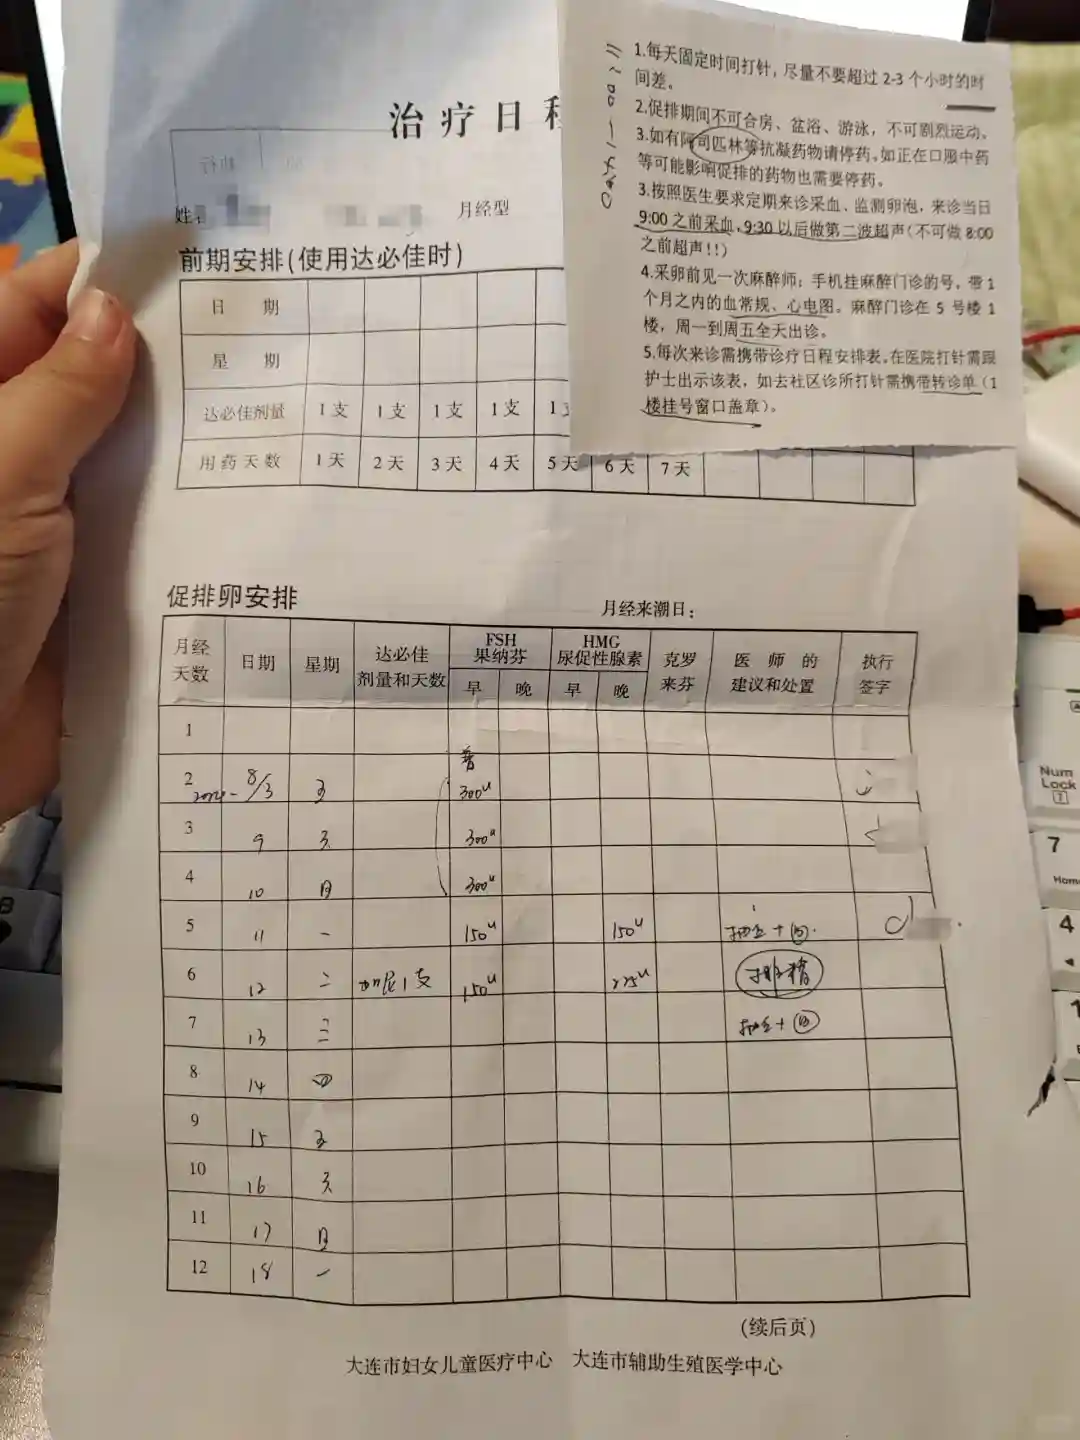 治疗日程
1.每天固定时间打针，尽量不要超过 2-3 个小时的时
间差。
2.促排期间不可合房、盆浴、游泳，不可剧烈运动。
3.如有阿司匹林等抗凝药物请停药。如正在口服中药
等可能影响促排的药物也需要停药。
3.按照医生要求定期来诊采血、监测卵泡，来诊当日
9:00 之前采血，9:30 以后做第二波超声（不可做 8:00
之前超声!!）
4.采卵前见一次麻醉师：手机挂麻醉门诊的号，带 1
个月之内的血常规、心电图。麻醉门诊在 5 号楼 1
楼，周一到周五全天出诊。
5.每次来诊需携带诊疗日程安排表，在医院打针需跟
护士出示该表，如去社区诊所打针需携带转诊单（1
楼挂号窗口盖章）。
姓 月经型
前期安排(使用达必佳时)
日 期
星 期
达必佳剂量 1支 1支 1支 1支 1
用药天数 1天 2天 3天 4天 5天 6天 7天
促排卵安排 月经来潮日:
月经天数 日期 星期 达必佳剂量和天数 FSH果纳芬 早 晚 HMG尿促性腺素 早 晚 克罗来芬 医师的建议和处置 执行签字
1
2 8/3 五 300u
3 9 六 300u
4 10 日 300u
5 11 一 150u 150u 抽血+
6 12 二 1支 150u 225u 排精
7 13 三 抽血+
8 14 四
9 15 五
10 16 六
11 17 日
12 18 一
(续后页)
大连市妇女儿童医疗中心 大连市辅助生殖医学中心